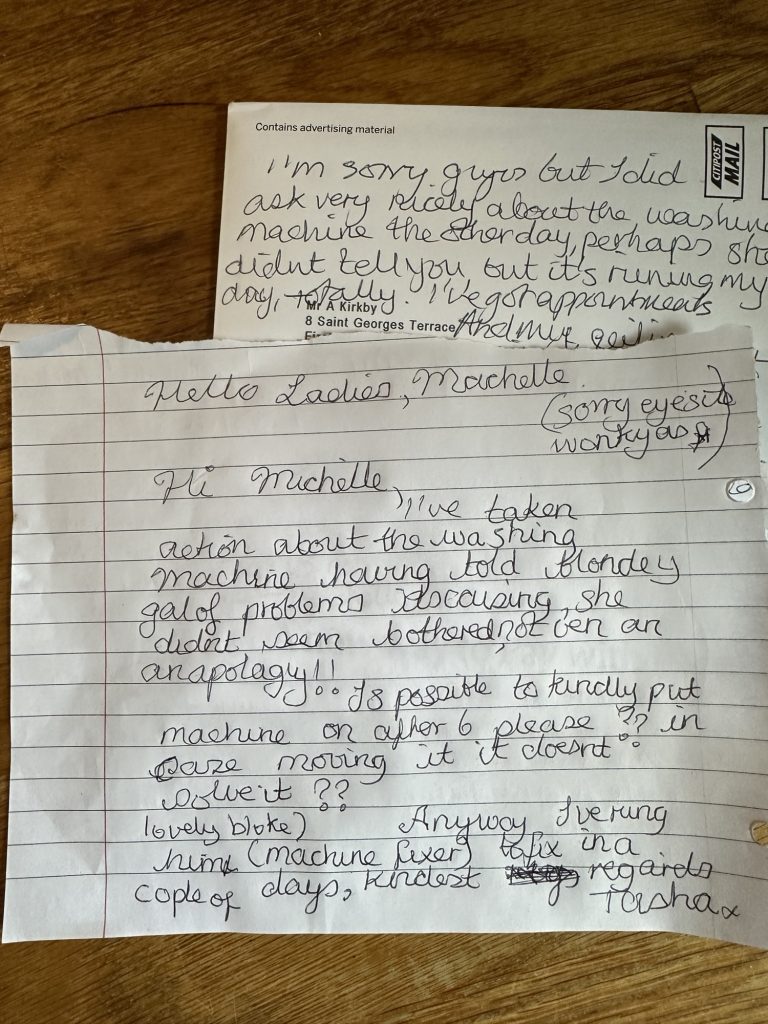 Contains advertising material
CITIPOST
MAIL
I'm sorry guys but I did
ask very nicely about the washin
machine the other day, perhaps she
didnt tell you but it's runing my
day, totally. I've got appointments
Mr A Kirkby
8 Saint Georges Terrace
And my
Hello Ladies, Machelle
(sorry eyesite
wonky as
Hi Michelle,
I've taken
action about the washing
machine having told blondey
gal of problems its causing, she
didnt seem bothered, not ven an
an apology!!
Is possible to kindly put
machine on after 6 please ?? in
caze moving it it doesnt
solve it ??
lovely bloke) Anyway I've rung
him (machine fixer) to fix in a
cople of days, kindest regards
Tasha x